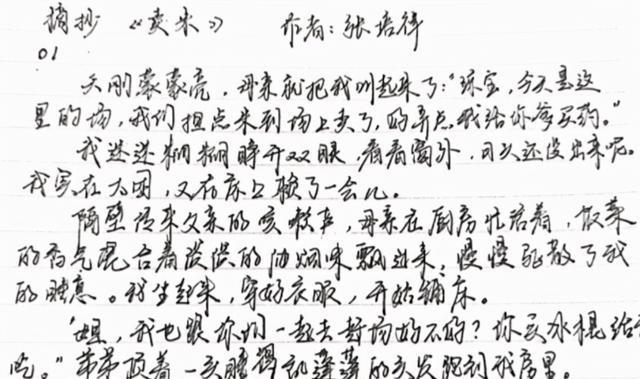 摘抄 《卖米》 作者：张培祥
01
天刚蒙蒙亮，母亲就把我叫起来了：“琼宝，今天是这
里的场，我们担点米到场上卖了，好弄点钱给你爹买药。”
我迷迷糊糊睁开双眼，看看窗外，日头还没出来呢。
我实在太困，又在床上赖了一会儿。
隔壁传来父亲的咳嗽声，母亲在厨房忙活着，饭菜
的香气混合着淡淡的油烟味飘过来，慢慢驱散了我
的睡意。我坐起来，穿好衣服，开始铺床。
“姐，我也跟你们一起去赶场好不好？你买冰棍给我
吃。”弟弟顶着一头睡得乱蓬蓬的头发跑到我房里。